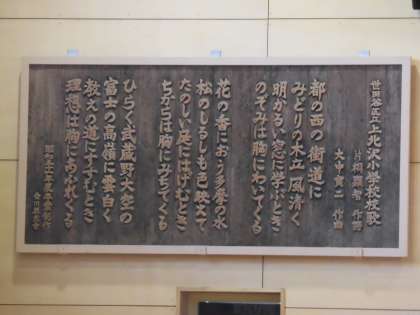 世田谷区立上北沢小学校校歌
片桐顕智 作詞
大中寅二 作曲
都の西の街道に
みどりの木立 風清く
明かるい窓に学ぶとき
のぞみは胸にわいてくる
花の香におう多摩の水
松のしるしも色映えて
たのしい足にはげむとき
ちからは胸にみちてくる
ひらく武蔵野大空の
富士の高嶺に雲白く
教えの道にすすむとき
理想は胸に
年度卒業制作